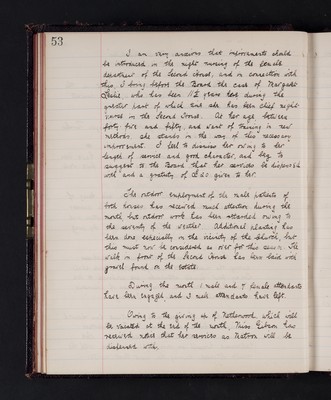 53
I am very anxious that improvements should
be introduced in the night nursing of the female
department of the Second House, and in connection with
this I bring before the Board the case of Margaret
Leslie, who has been 11½ years here during the
greater part of which time she has been chief night
nurse in the Second House. At her age between
forty five and fifty, and want of training in new
methods she stands in the way of this necessary
improvement. I feel to dismiss her owing to her
length of service and good character, and beg to
suggest to the Board that her services be dispensed
with and a gratuity of be given to her.
The outdoor employment of the male patients of
both houses has received much attention during the
month but outdoor work has been retarded owing to
the severity of the weather. Additional planting has
been done especially in the vicinity of the church, but
this must now be considered as over for this season. The
walk in front of the Second House has been laid with
gravel found on the estate.
During the month 1 male and 7 female attendants
have been engaged and 3 male attendants have left.
Owing to the giving up of Netherwood which will
be vacated at the end of the month, Miss Gibson has
received notice that her services as Matron will be
dispensed with.